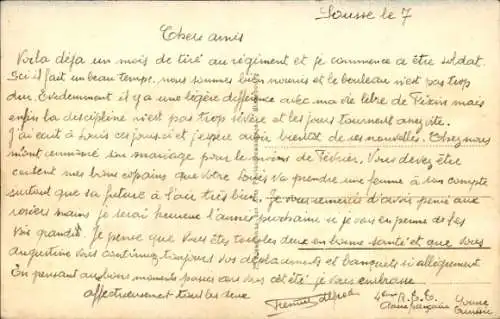 Sousse le 7
Chers amis
Voilà déja un mois de tiré au régiment et je commence a être soldat.
Ici il fait un beau temps, nous sommes bien nourris et le bouleau n'est pas trop
dur. Evidemment il y a une légère différence avec ma vie libre de mais
enfin la discipline n'est pas trop sévère et les jours tournent
J'ai écrit à Louis ces jours ci et j'espère avoir bientot de ses nouvelles. Chez nous
m'ont son mariage pour le de Février. Vous devez être
content mes bons copains que votre Louis va prendre une femme à son compte
surtout que sa future à l'air très bien. Je vous remercie d'avoir pensé aux
rosiers mains je serai heureux l'année prochaine si je vois en peine de les
voir grandir. Je pense que vous êtes tous les deux en bonne santé et que vous
Augustine vous continuez toujours vos déplacements et banquets si allègrement
En pensant aux bons moments passés avec vous cet été je vous embrasse
affectueusement tous les deux
4ème
Tunisie